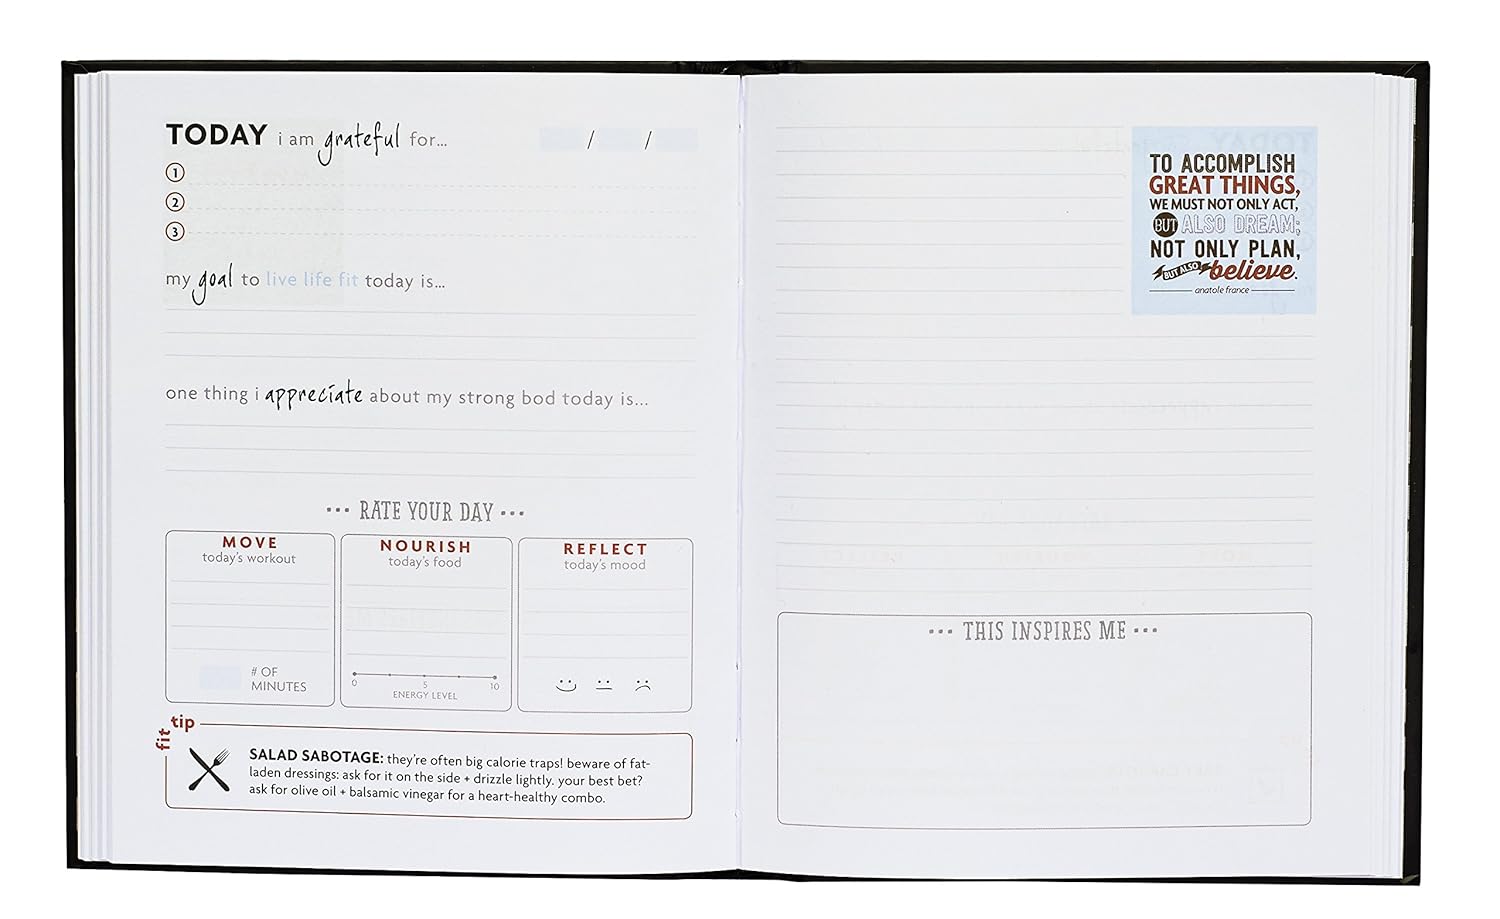 TODAY i am grateful for... / /
1
2
3
my goal to live life fit today is...
one thing i appreciate about my strong bod today is...
··· RATE YOUR DAY ···
MOVE
today's workout
# OF
MINUTES
NOURISH
today's food
0 5 10
ENERGY LEVEL
REFLECT
today's mood
fit tip
SALAD SABOTAGE: they're often big calorie traps! beware of fat-
laden dressings: ask for it on the side + drizzle lightly. your best bet?
ask for olive oil + balsamic vinegar for a heart-healthy combo.
TO ACCOMPLISH
GREAT THINGS,
WE MUST NOT ONLY ACT,
BUT ALSO DREAM;
NOT ONLY PLAN,
BUT ALSO believe.
anatole france
··· THIS INSPIRES ME ···